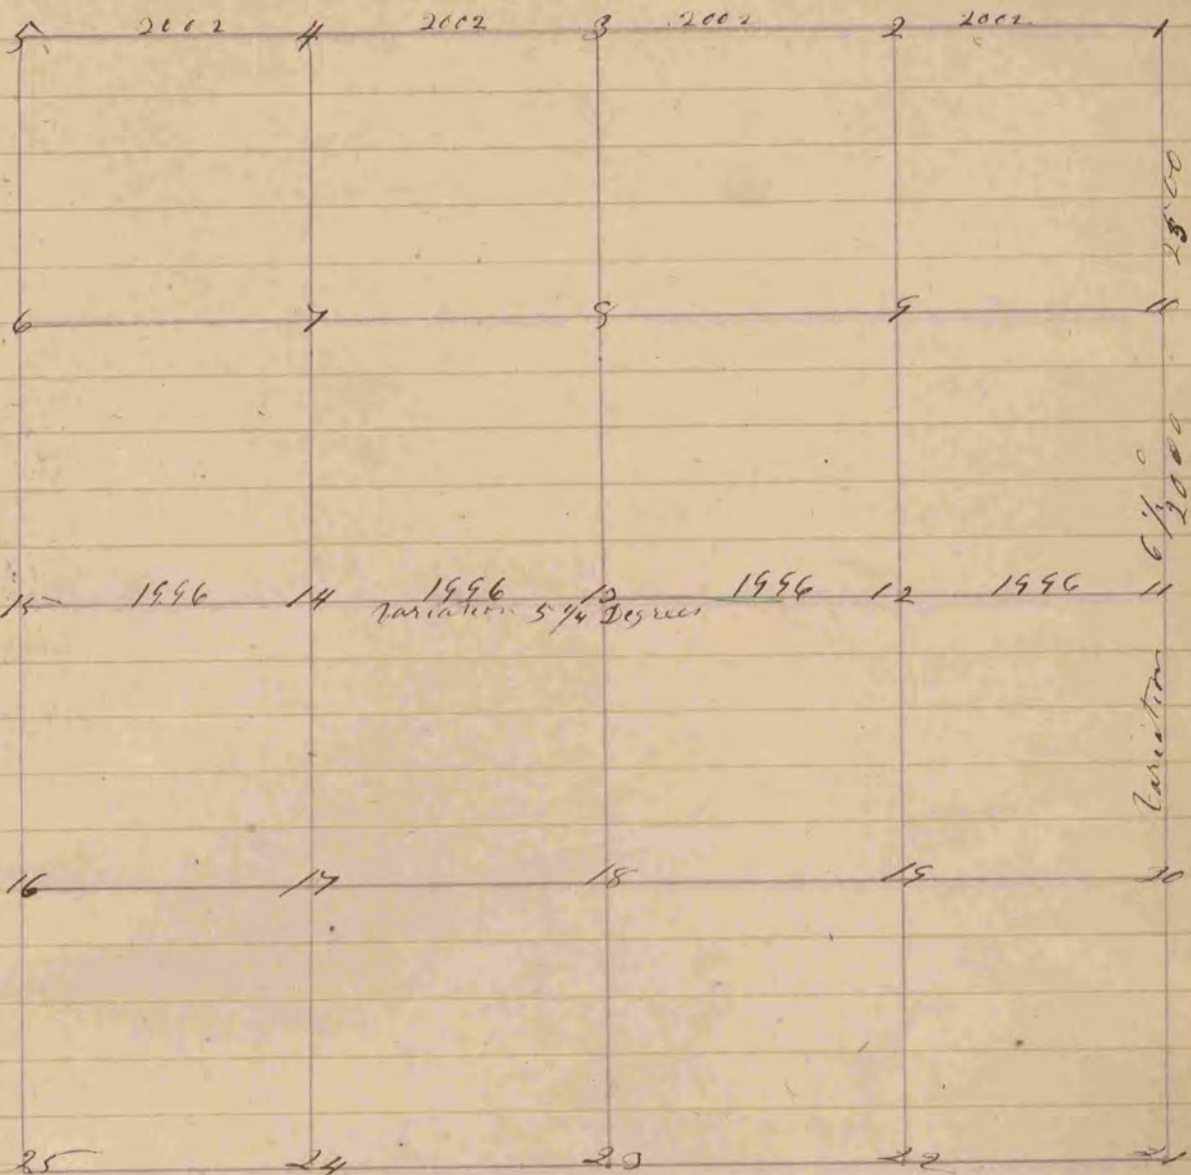 5 2002 4 2002 3 2002 2 2002 1
2500
6 7 8 9 10
6 1/2°
2000
15 1996 14 1996 13 1996 12 1996 11
Variation 5 1/4 Degrees
Variation
16 17 18 19 20
25 24 23 22 21